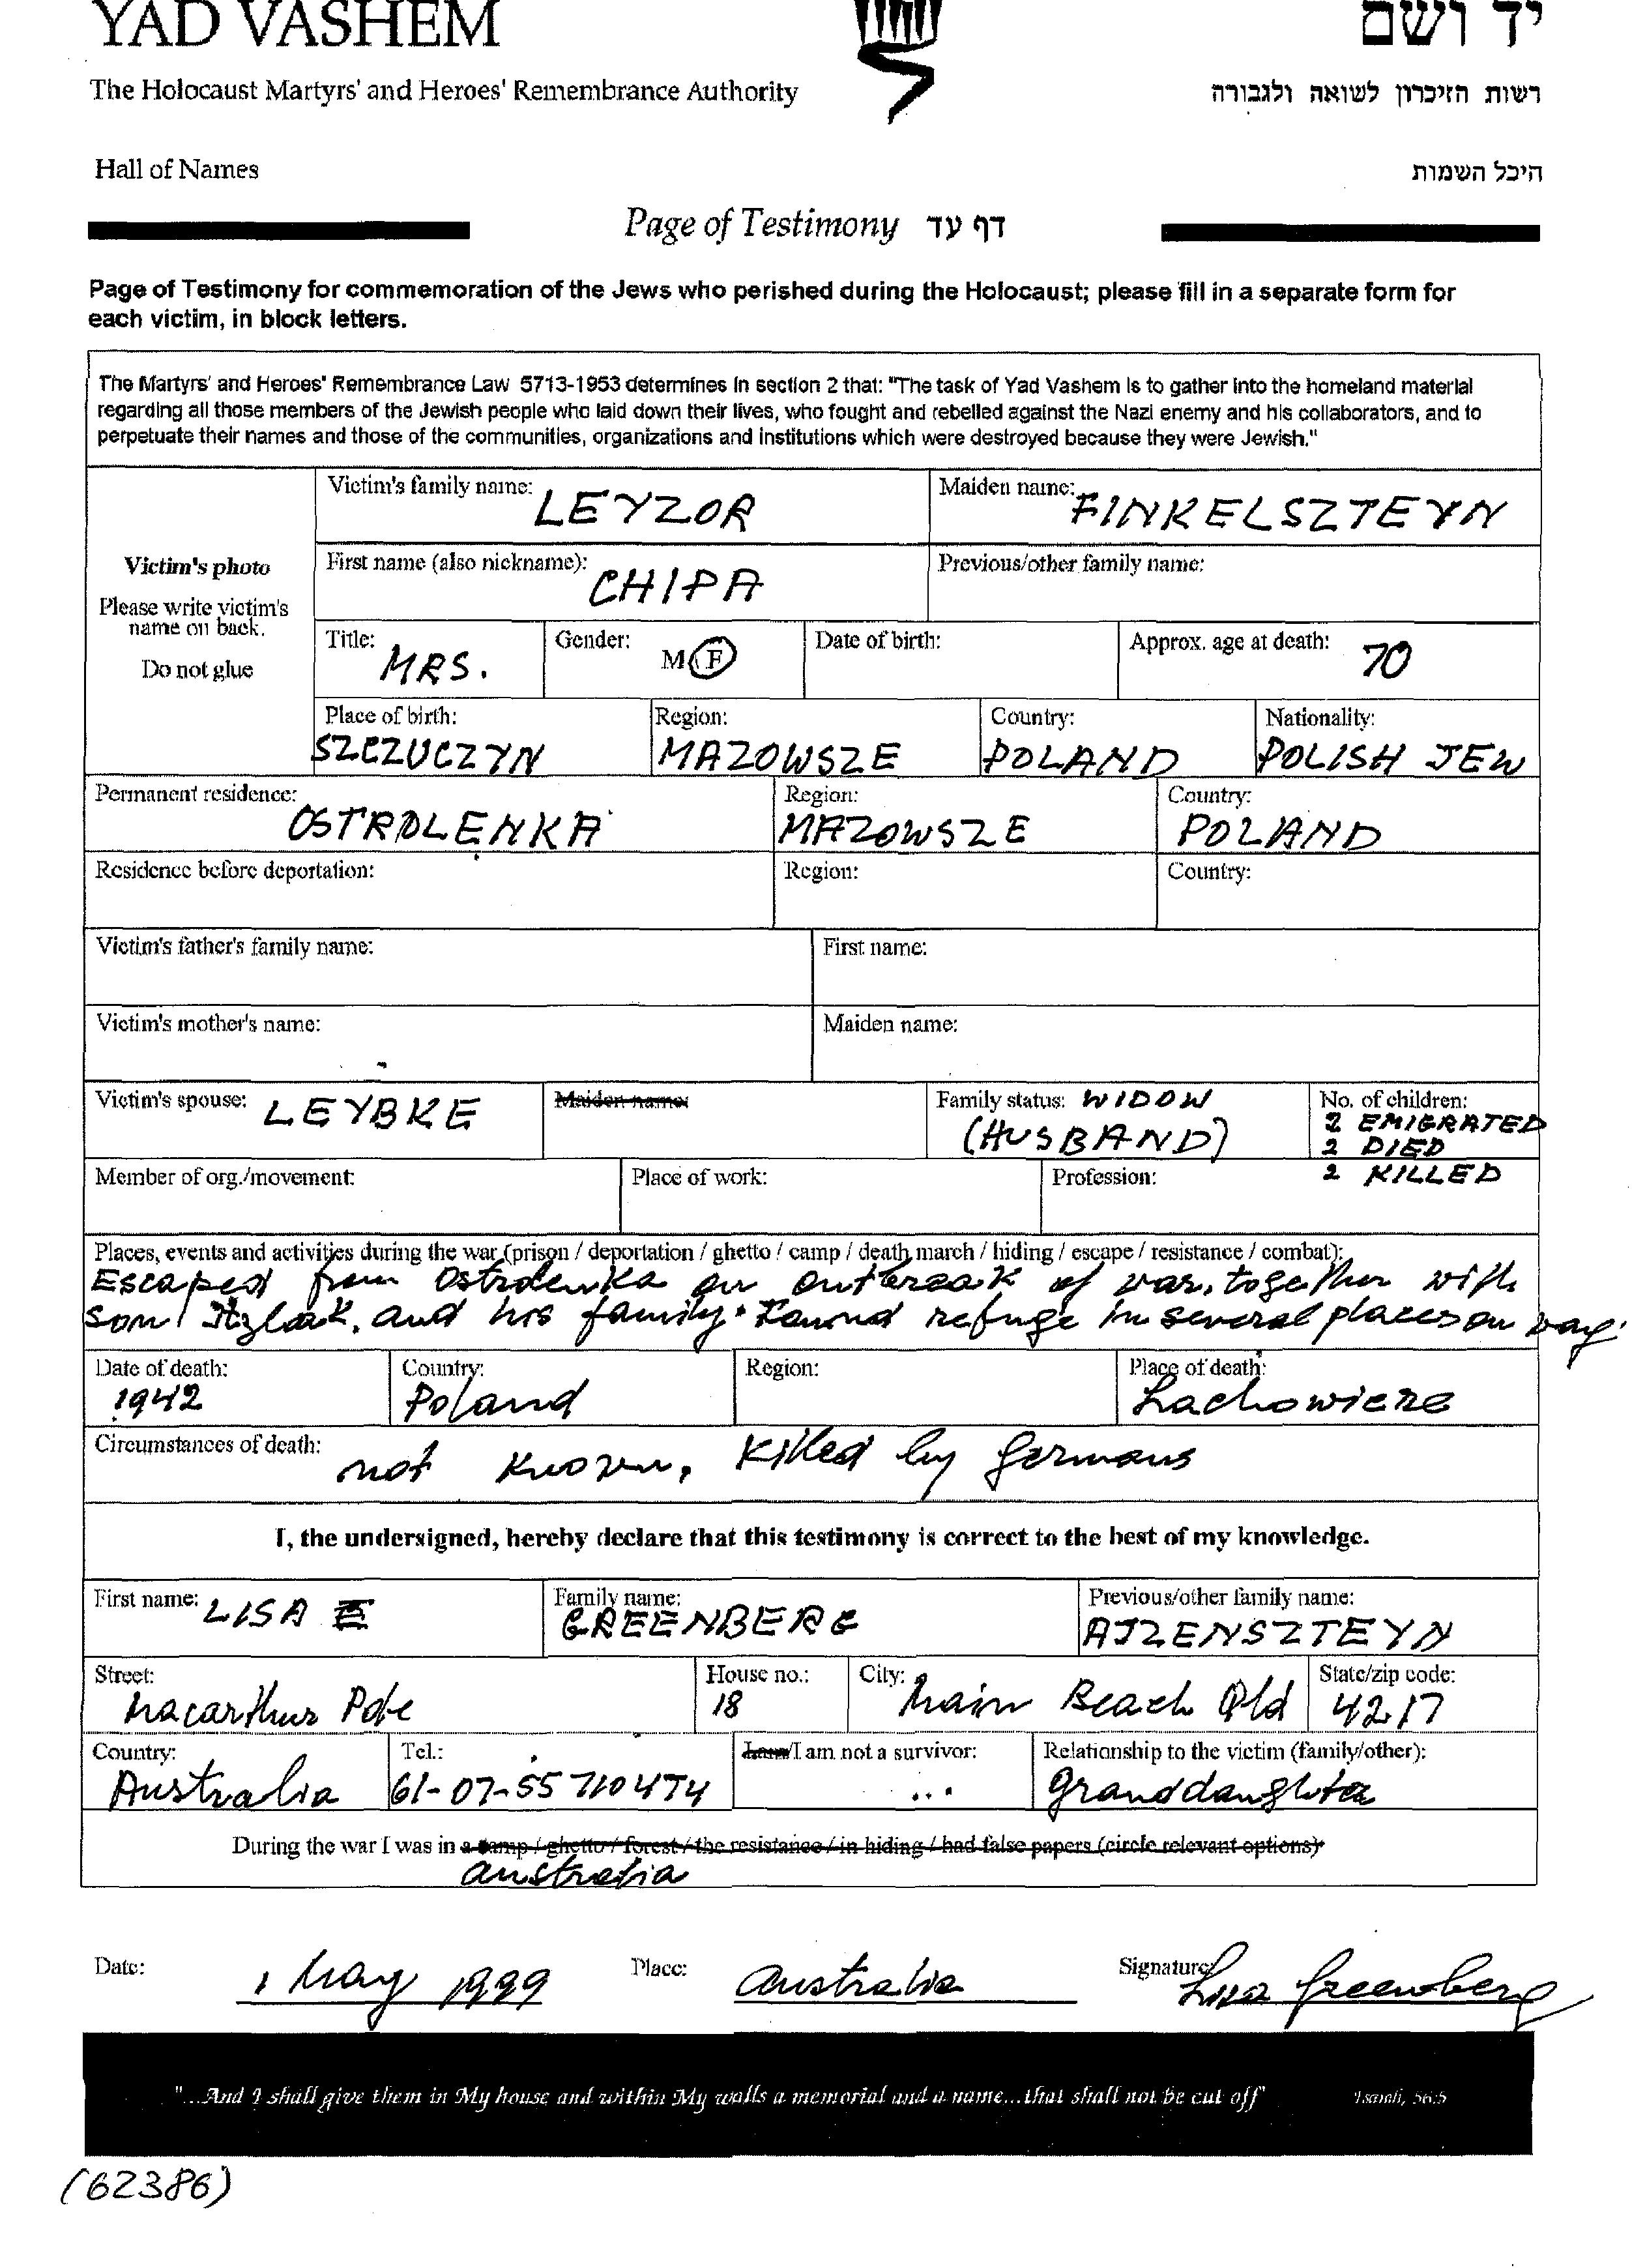 YAD VASHEM
יד ושם
The Holocaust Martyrs' and Heroes' Remembrance Authority
רשות הזיכרון לשואה ולגבורה
Hall of Names
היכל השמות
Page of Testimony דף עד
Page of Testimony for commemoration of the Jews who perished during the Holocaust; please fill in a separate form for
each victim, in block letters.
The Martyrs' and Heroes' Remembrance Law 5713-1953 determines in section 2 that: "The task of Yad Vashem is to gather into the homeland material
regarding all those members of the Jewish people who laid down their lives, who fought and rebelled against the Nazi enemy and his collaborators, and to
perpetuate their names and those of the communities, organizations and institutions which were destroyed because they were Jewish."
Victim's photo
Please write victim's
name on back.
Do not glue
Victim's family name: LEYZOR
Maiden name: FINKELSZTEYN
First name (also nickname): CHIPA
Previous/other family name:
Title: MRS.
Gender: M F
Date of birth:
Approx. age at death: 70
Place of birth: SZCZUCZYN
Region: MAZOWSZE
Country: POLAND
Nationality: POLISH JEW
Permanent residence: OSTROLENKA
Region: MAZOWSZE
Country: POLAND
Residence before deportation:
Region:
Country:
Victim's father's family name:
First name:
Victim's mother's name:
Maiden name:
Victim's spouse: LEYBKE
Maiden name:
Family status: WIDOW
(HUSBAND)
No. of children:
2 EMIGRATED
2 DIED
2 KILLED
Member of org./movement:
Place of work:
Profession:
Places, events and activities during the war (prison / deportation / ghetto / camp / death march / hiding / escape / resistance / combat):
Escaped from Ostrolenka on outbreak of war, together with
son Itzlak, and his family. Found refuge in several places on way.
Date of death: 1942
Country: Poland
Region:
Place of death: Lachowicze
Circumstances of death: not known, killed by germans
I, the undersigned, hereby declare that this testimony is correct to the best of my knowledge.
First name: LISA
Family name: GREENBERG
Previous/other family name: AJZENSZTEYN
Street: Macarthur Pde
House no.: 18
City: Main Beach Qld
State/zip code: 4217
Country: Australia
Tel.: 61-07-55 710474
I am/I am not a survivor:
...
Relationship to the victim (family/other): granddaughter
During the war I was in a camp / ghetto / forest / the resistance / in hiding / had false papers (circle relevant options)
australia
Date: 1 May 1999
Place: Australia
Signature: Lisa Greenberg
"...And I shall give them in My house and within My walls a memorial and a name...that shall not be cut off" Isaiah, 56:5
(62386)